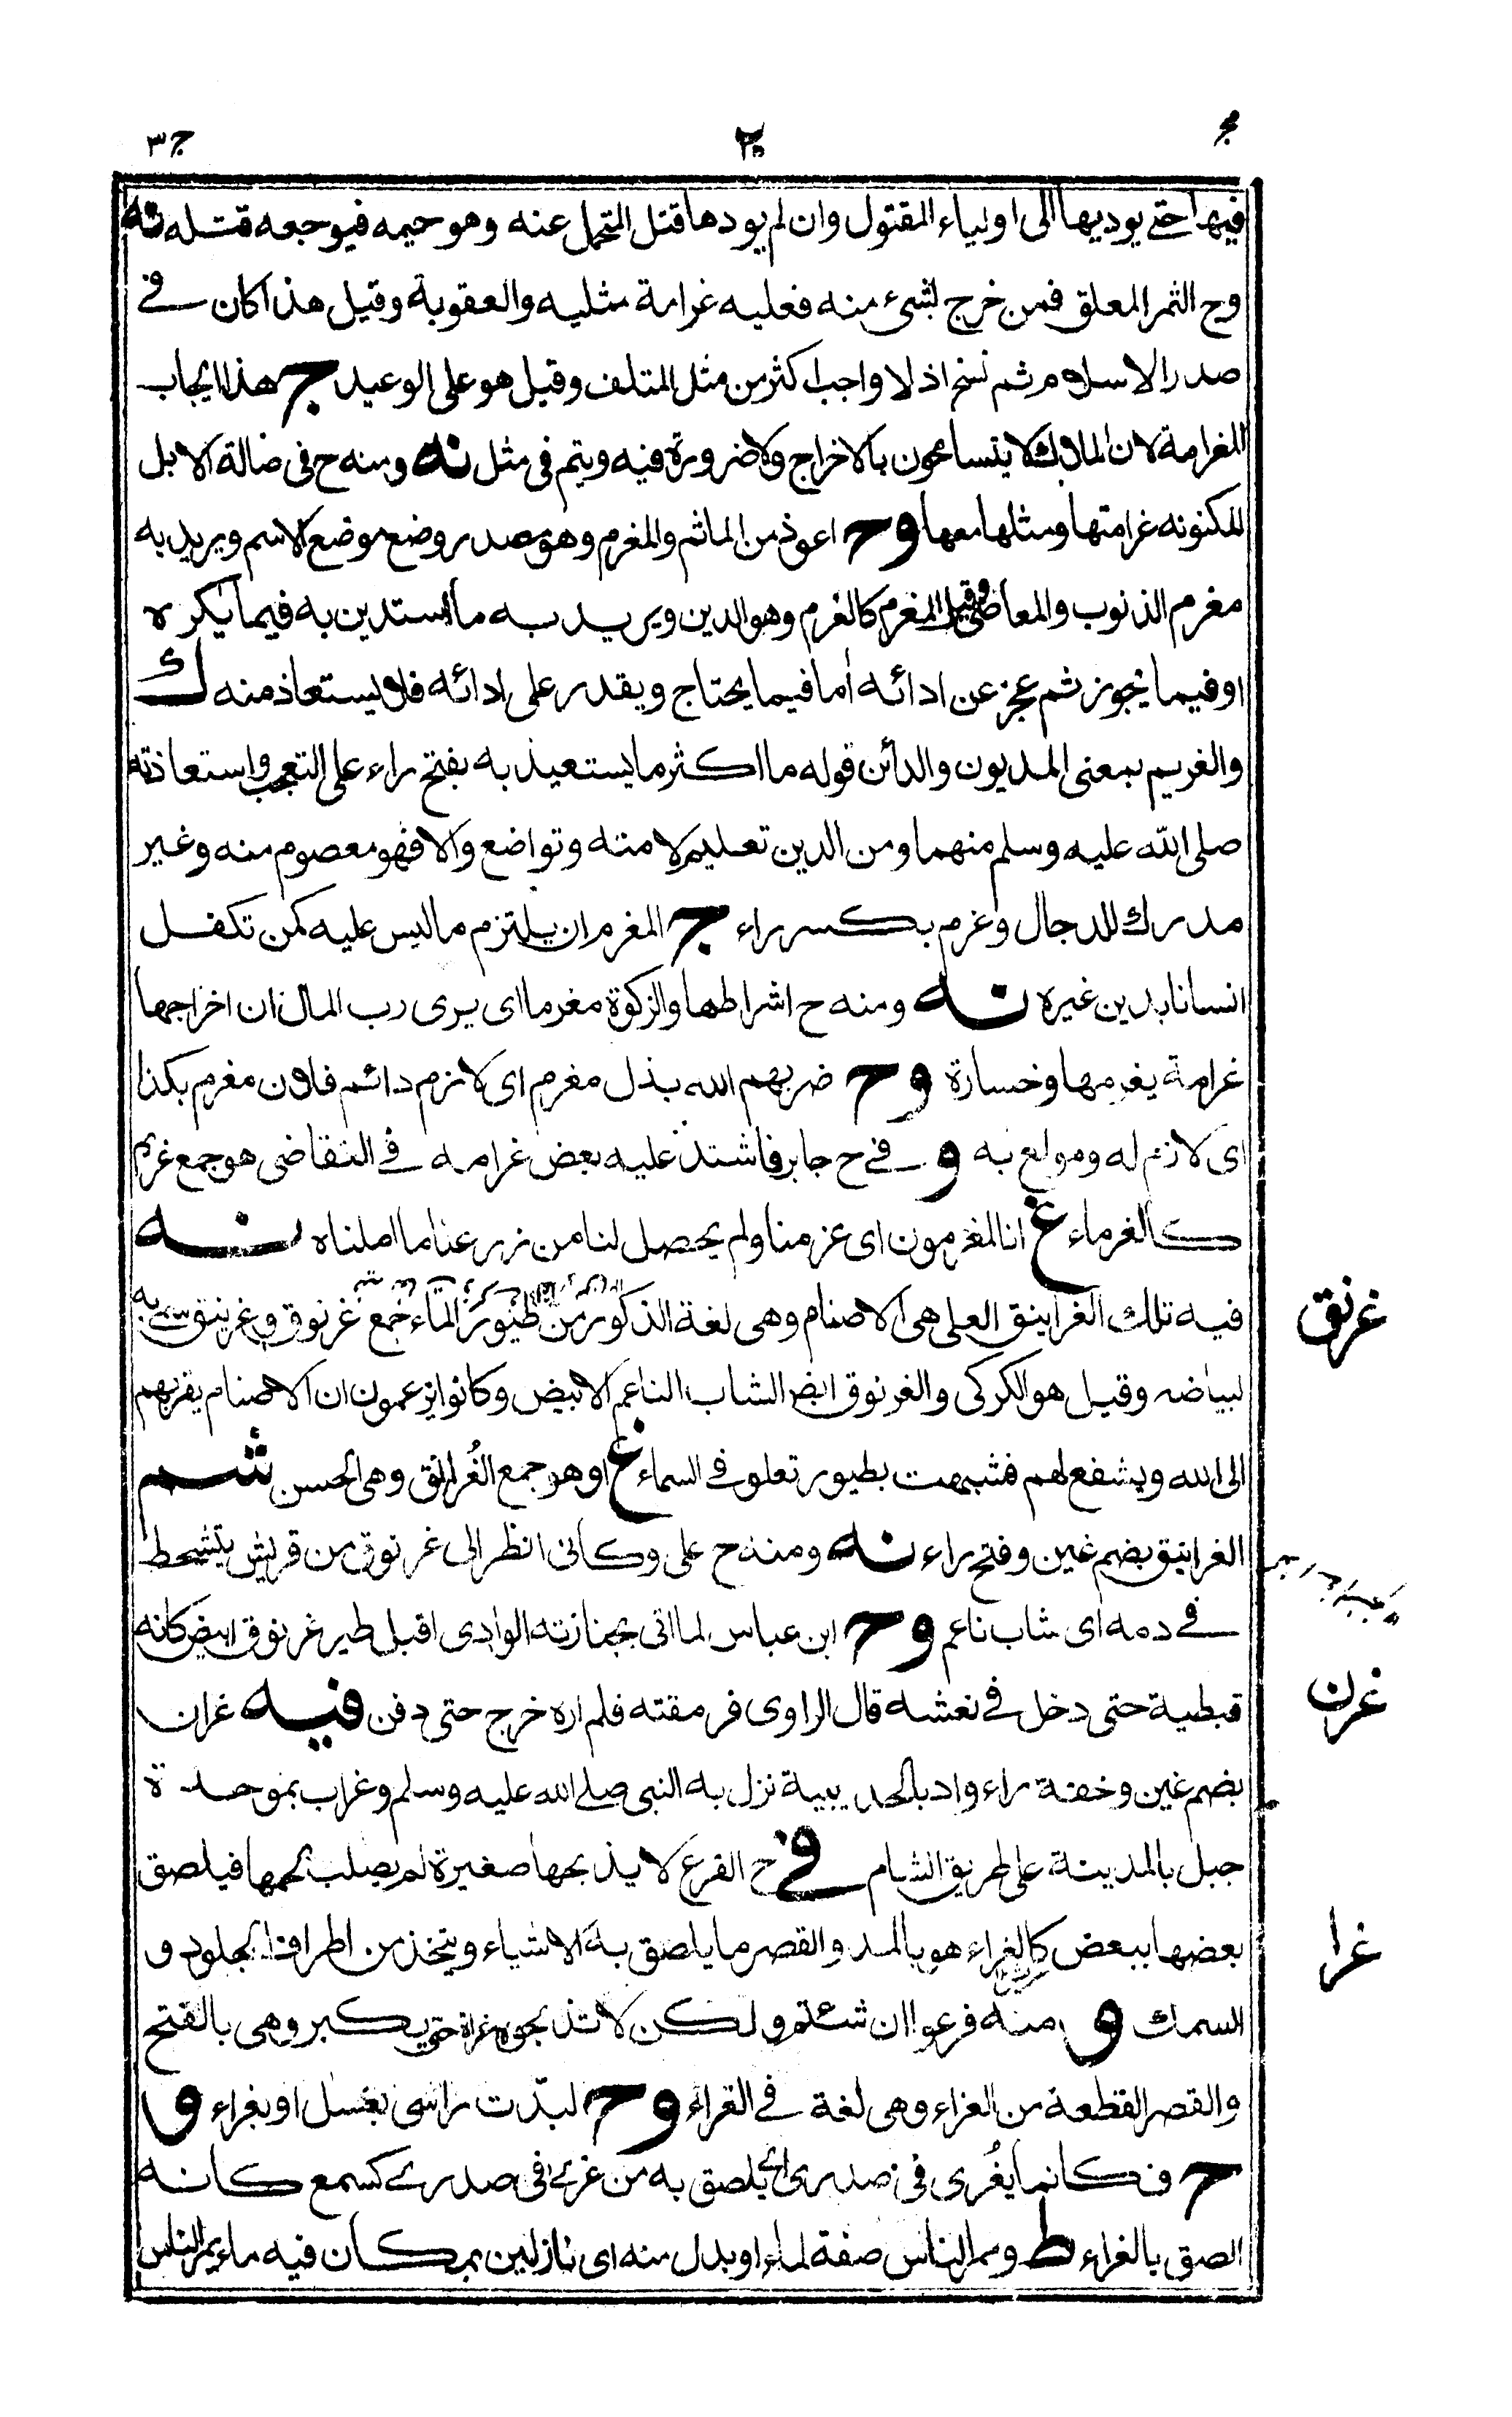 مج ٢٠ ج٣
فيها حتى يوديها الى اولياء المقتول وان لم يودها قتل المتحمل عنه وهو حميمه فيوجعه قتله نه
وح الثمر المعلق فمن خرج بشىء منه فعليه غرامة مثليه والعقوبة وقيل هذا كان فى
صدر الاسلام ثم نسخ اذ لا واجب اكثر من مثل المتلف وقيل هو على الوعيد ج هذا ايجاب
للغرامة لان الملاك لا يتسامحون بالاخراج ولا ضرورة فيه ويتم فى مثل نه ومنه ح فى ضالة الابل
المكتومة غرامتها ومثلها معها وح اعوذ من الماثم والمغرم وهو مصدر وضع موضع الاسم ويريد به
مغرم الذنوب والمعاصى وقيل المغرم كالغرم وهو الدين ويريد به ما استدين به فيما يكره
او فيما يجوز ثم عجز عن ادائه اما فيما يحتاج ويقدر على ادائه فلا يستعاذ منه ك
والغريم بمعنى المديون والدائن قوله ما اكثر ما يستعيذ به بفتح راء على التعجب واستعاذته
صلى الله عليه وسلم منهما ومن الدين تعليم لامته وتواضع والا فهو معصوم منه وغير
مدرك للدجال وغرم بكسر راء ج المغرم ان يلتزم ما ليس عليه كمن تكفل
انسانا بدين غيره نه ومنه ح اشراطها والزكوة مغرما اى يرى رب المال ان اخراجها
غرامة يغرمها وخسارة وح ضربهم الله بذل مغرم اى لازم دائم فلان مغرم بكذا
اى لازم له ومولع به و فى ح جابر فاشتد عليه بعض غرامه فى التقاضى هو جمع غريم
كالغرماء غ انا لمغرمون اى غرمنا ولم يحصل لنا من زرعنا ما املناه نه
غرنق
فيه تلك الغرانيق العلى هى الاصنام وهى لغة الذكور من طيور الماء جمع غرنوق وغرنيق سمى به
لبياضه وقيل هو الكركى والغرنوق ايضا الشاب الناعم الابيض وكانوا يزعمون ان الاصنام يقربهم
الى الله ويشفع لهم فشبهت بطيور تعلو فى السماء غ او هو جمع الغرانق وهى الحسن شم
الغرانيق بضم غين وفتح راء نه ومنه ح على وكانى انظر الى غرنوق من قريش يتشحط
فى دمه اى شاب ناعم وح ابن عباس لما اتى بجنازته الوادى اقبل طير غرنوق ابيض كانه
غرن
قبطية حتى دخل فى نعشه قال الراوى فرمقته فلم اره خرج حتى دفن فيه غران
بضم غين وخفة راء واد بالحديبية نزل به النبى صلى الله عليه وسلم وغراب بموحدة
جبل بالمدينة على طريق الشام فى ح الفرع لا يذبحها صغيرة لم يصلب لحمها فيلصق
غرا
بعضها ببعض كالغراء هو بالمد والقصر ما يلصق به الاشياء ويتخذ من اطراف الجلود و
السمك و منه فرعوا ان شئتم ولكن لا تذبحوه غراة حتى يكبر وهى بالفتح
والقصر القطعة من الغراء وهى لغة فى الغراء وح لبدت راسى بغسل او بغراء و
ح ف كانما يغرى فى صدرى اى يلصق به من غرى فى صدرى كسمع كانه
الصق بالغراء ط وممر الناس صفة لماء او بدل منه اى نازلين بمكان فيه ماء يمر الناس